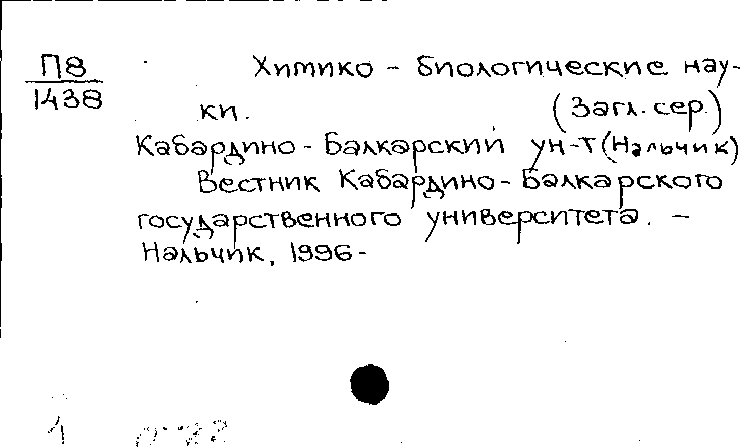 П8
1438
Химико - биологические нау-
ки. (Загл. сер.)
Кабардино - Балкарский ун-т (Нальчик)
Вестник Кабардино - Балкарского
государственного университета. -
Нальчик, 1996 -
1